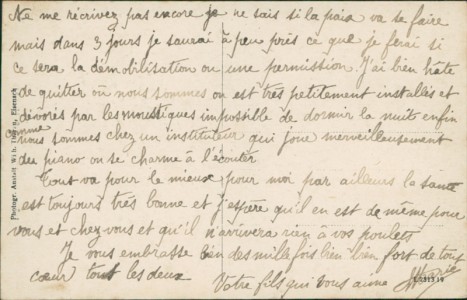 Ne me récrivez pas encore je ne sais si la paix va se faire
mais dans 3 jours je saurai à peu près ce que je ferai si
ce sera la démobilisation ou une permission. J'ai bien hâte
de quitter où nous sommes on est très petitement installés et
dévorés par les moustiques impossible de dormir la nuit enfin
comme nous sommes chez un instituteur qui joue merveilleusement
du piano on se charme à l'écouter
Tout va pour le mieux pour moi par ailleurs la santé
est toujours très bonne et j'espère qu'il en est de même pour
vous et chez vous et qu'il n'arrivera rien à vos poulets
Je vous embrasse bien des mille fois bien bien fort de tout
cœur tous les deux Votre fils qui vous aime